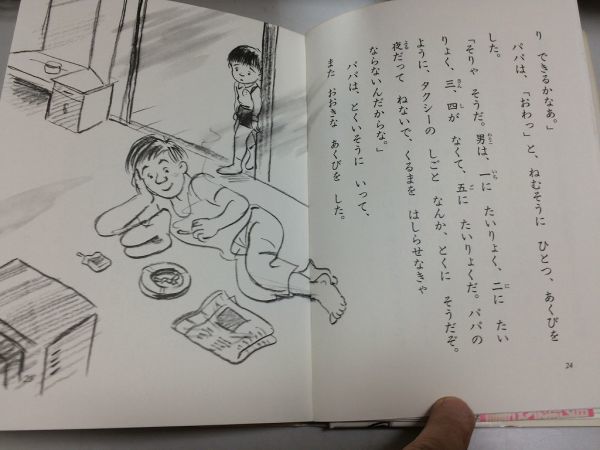 り できるかなあ。」
パパは、「おわっ」と、ねむそうに ひとつ、あくびを
した。
「そりゃ そうだ。男は、一に たいりょく、二に たい
りょく、三、四が なくて、五に たいりょくだ。パパの
ように、タクシーの しごと なんか、とくに そうだぞ。
夜だって ねないで、くるまを はしらせなきゃ
ならないんだからな。」
パパは、とくいそうに いって、
また おおきな あくびを した。
24
25